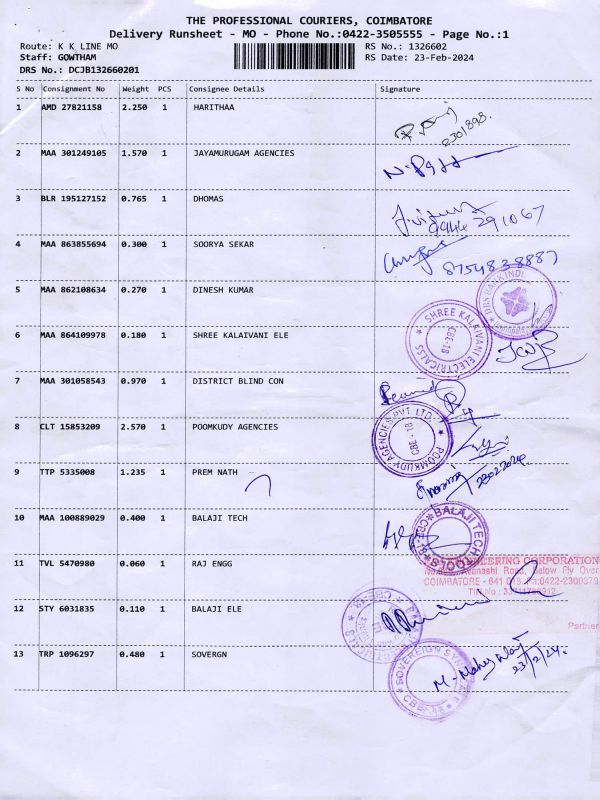 THE PROFESSIONAL COURIERS, COIMBATORE
Delivery Runsheet - MO - Phone No.:0422-3505555 - Page No.:1
Route: K K LINE MO
RS No.: 1326602
Staff: GOWTHAM
RS Date: 23-Feb-2024
DRS No.: DCJB132660201
S No Consignment No Weight PCS Consignee Details Signature
1 AMD 27821158 2.250 1 HARITHAA
2301898.
2 MAA 301249105 1.570 1 JAYAMURUGAM AGENCIES
3 BLR 195127152 0.765 1 DHOMAS
9944 291067
4 MAA 863855694 0.300 1 SOORYA SEKAR
8754838887
5 MAA 862108634 0.270 1 DINESH KUMAR
DBS BANK INDI
6 MAA 864109978 0.180 1 SHREE KALAIVANI ELE
SHREE KALAIVANI ELECTRICALSS
CBE-18
7 MAA 301058543 0.970 1 DISTRICT BLIND CON
8 CLT 15853209 2.570 1 POOMKUDY AGENCIES
POOMKUDY AGENCIES PVT LTD.
CBE-18
9 TTP 5335008 1.235 1 PREM NATH
23022024.
10 MAA 100889029 0.400 1 BALAJI TECH
BALAJI TECH TOOLS
CBE-18
11 TVL 5470980 0.060 1 RAJ ENGG
EERING CORPORATION
Avanashi Road, Below Fly Over
COIMBATORE - 641 018. Ph:0422-2300373
12 STY 6031835 0.110 1 BALAJI ELE
CBE-18
Partner
13 TRP 1096297 0.480 1 SOVERGN
SOVEREIGN
CBE
23/2/24.